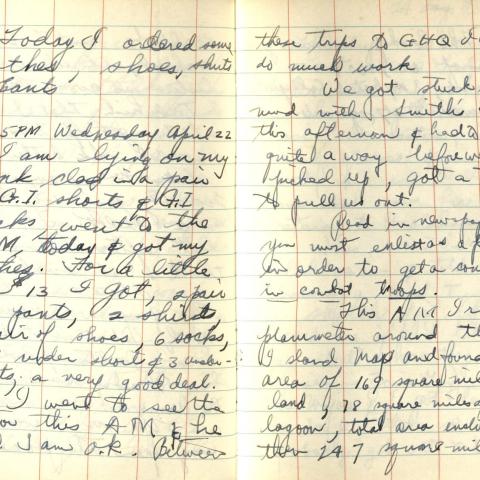 Today I ordered some
thes, shoes, shirts
pants
5PM Wednesday April 22
I am lying on my
nk clad in a pair
G.I. shorts & G.I
cks went to the
M today & got my
hes. For a little
$13 I got, a pair
pants, 2 shirts
air of shoes, 6 socks,
under shorts & 3 under-
ts; a very good deal.
I went to see the
or this AM & he
I am O.K. Between
these trips to GHQ I
do much work
We got stuck
mud with Smith's
this afternoon & had
quite a way before we
picked up, got a
to pull us out.
Read in newspap
you must enlist as a p
in order to get a com
in combat troops.
This AM I r
planimeter around th
Island Map and found
area of 169 square mil
land, 78 square miles
lagoon, total area encl
then 247 square mil